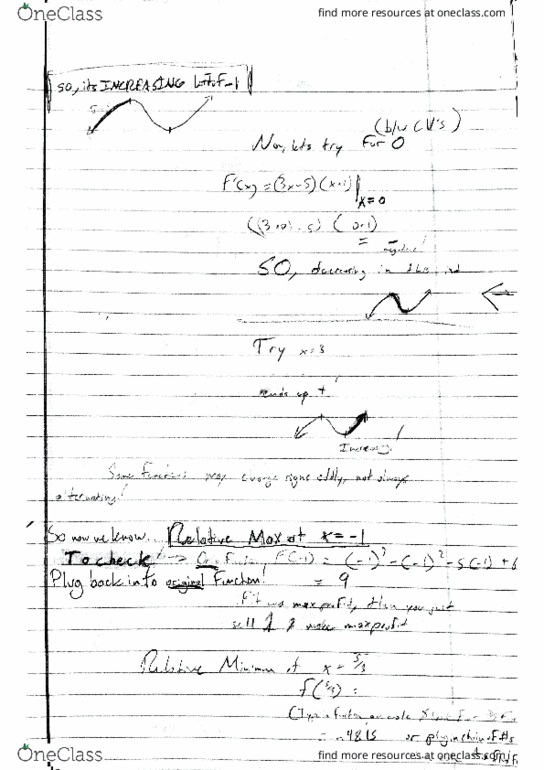 OneClass
find more resources at oneclass.com
so, its INCREASING left of -1
(b/w CV's)
Now, lets try For 0
F'(x) = (3x-5)(x+1)|x=0
((3·0)-5) (0+1)
= negative!
SO, decreasing in this
Try x=3
ends up +!
Increasing!
Some functions may change signs oddly, not always
alternating!
So now we know... Relative Max at x=-1
To check → F(-1) = (-1)³-(-1)²-5(-1)+6
Plug back into original Function! = 9
max profit, then you just
sell 1 & make max profit
Relative Minimum at x = 5/3
f(5/3) =
= -.4815 or plug in
OneClass
find more resources at oneclass.com